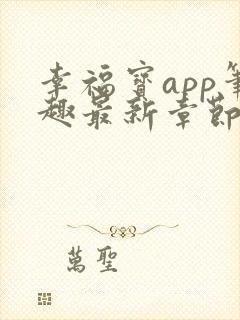 幸福寶app筆
趣最新章節
萬聖